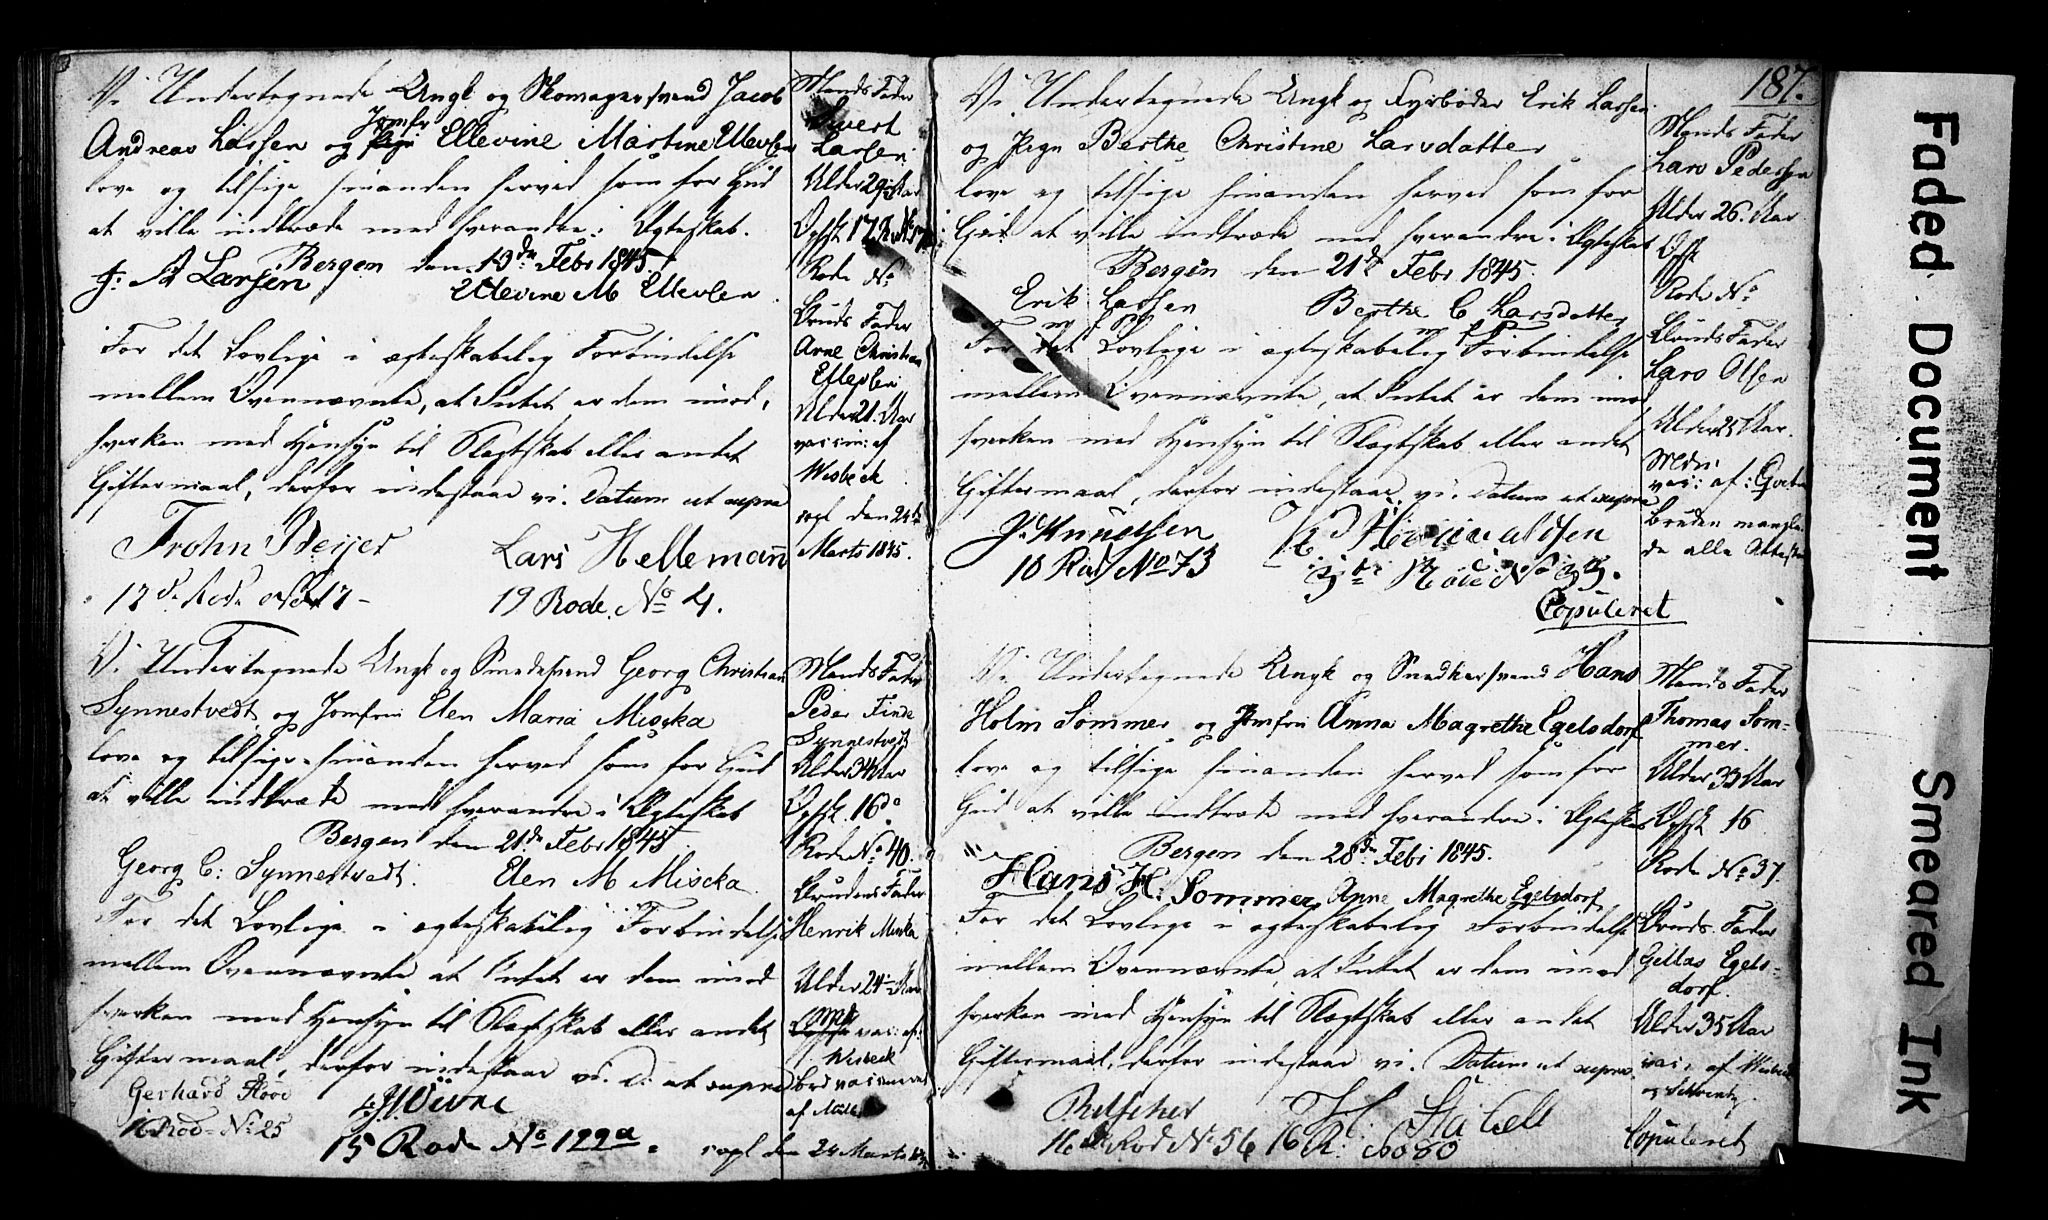 Vi Undertegnede Ungk og Skomagersvend Jacob
Andreas Larsen og Jomfr Ellevine Martine Ellevsen
love og tilsige hinanden herved som for Gud
at ville indtræde med hverandre i Ægteskab.
Bergen den 19de Febr 1845
J: A Larsen Ellevine M Ellevsen
For det Lovlige i ægteskabelig Forbindelse
mellem Ovennævnte, at Intet er dem imod,
hverken med Hensyn til Slægtskab eller andet
Giftermaal, derfor indestaae vi. Datum ut supra
Trohn Beijer Lars Helleman
17de Rode No 17 19 Rode No 4.
Mands Fader
Sivert
Larsen
Alder 29 Aar
Rode No
Bruds Fader
Arne Christian
Ellevsen
Alder 21 Aar
vaccin: af
Wisbeck
copl den 24de
Marts 1845.
Vi Undertegnede Ungk og Smedesvend Georg Christian
Synnestvedt og Jomfru Elen Maria Miscka
love og tilsige hinanden herved som for Gud
at ville indtræde med hverandre i Ægteskab
Bergen den 21de Febr 1845
Georg C: Synnestvedt. Elen M Miscka.
For det Lovlige i ægteskabelig Forbindelse
mellem Ovennævnte at Intet er dem imod
hverken med Hensyn til Slægtskab eller andet
Giftermaal, derfor indestaae vi. D: ut supra
Gerhard
16 Rod- No 25
15 Rode No 122a. copl den 24 Marts
Mands Fader
Peder Finde
Synnestvedt
Alder 34 Aar
Opsk. 16de
Rode No 40.
Brudens Fader
Henrik Miscka
Alder 24 Aar
vac: af
Wisbeck
Brd vaccineret
af
187.
Vi Undertegnede Ungk og Fyrbøder Erik Larsen
og Pign Berthe Christine Larsdatter
love og tilsige hinanden herved som for
Gud at ville indtræde med hverandre i Ægteskab
Bergen den 21de Febr 1845.
Erik Larsen Berthe C Larsdatter
m f P m f P
For det Lovlige i ægteskabelig Forbindelse
mellem Ovennævnte, at Intet er dem imod
hverken med Hensyn til Slægtskab eller andet
Giftermaal, derfor indestaae vi. Datum ut supra
Knudtsen
10 Rode No 73 Rode No 33.
Copuleret
Mands Fader
Lars Pedersen
Alder 26 Aar
Opsk
Rode No
Bruds Fader
Lars Olsen
Alder 25 Aar.
vac: af:
Bruden mangle-
de alle Attester
Vi Undertegnede Ungk og Snedkersvend Hans
Holm Sommer og Jomfru Anna Magrethe Egelsdorf
love og tilsige hinanden herved som for
Gud at ville indtræde med hverandre i Ægteskab
Bergen den 28de Febr 1845.
Hans H. Sommer Anne Magrethe Egelsdorf
For det Lovlige i ægteskabelig Forbindelse
mellem Ovennævnte, at Intet er dem imod
hverken med Hensyn til Slægtskab eller andet
Giftermaal, derfor indestaae vi. Datum ut supra.
16 Rod No 56 16 R. No 80
Mands Fader
Thomas Som-
mer.
Alder 33 Aar
Opsk 16
Rode No 37.
Bruds Fader
Gellas Egels-
dorf.
Alder 35 Aar
vac: af Wisbeck
Copuleret
Faded Document
Smeared Ink